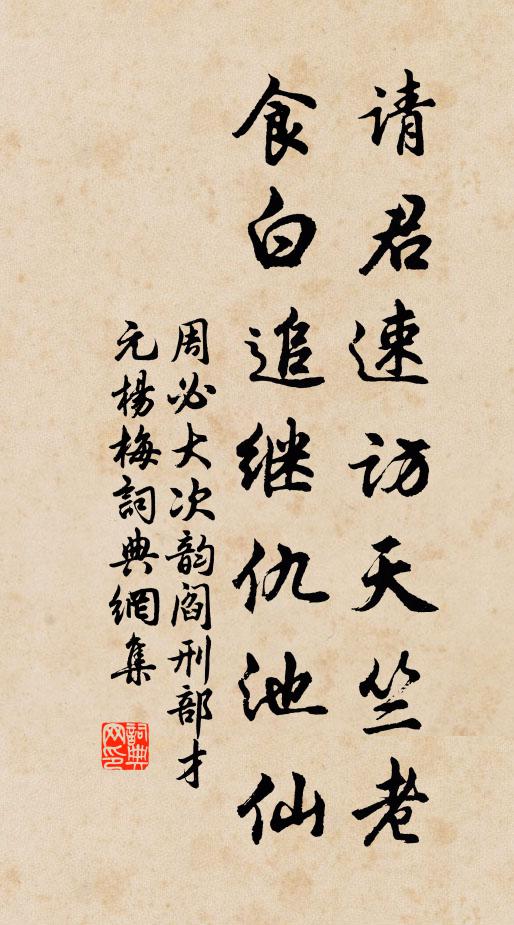 请君速访天竺老
食白追继仇池仙
周必大次韵阎刑部才
元杨梅詞典網集
詞典网印